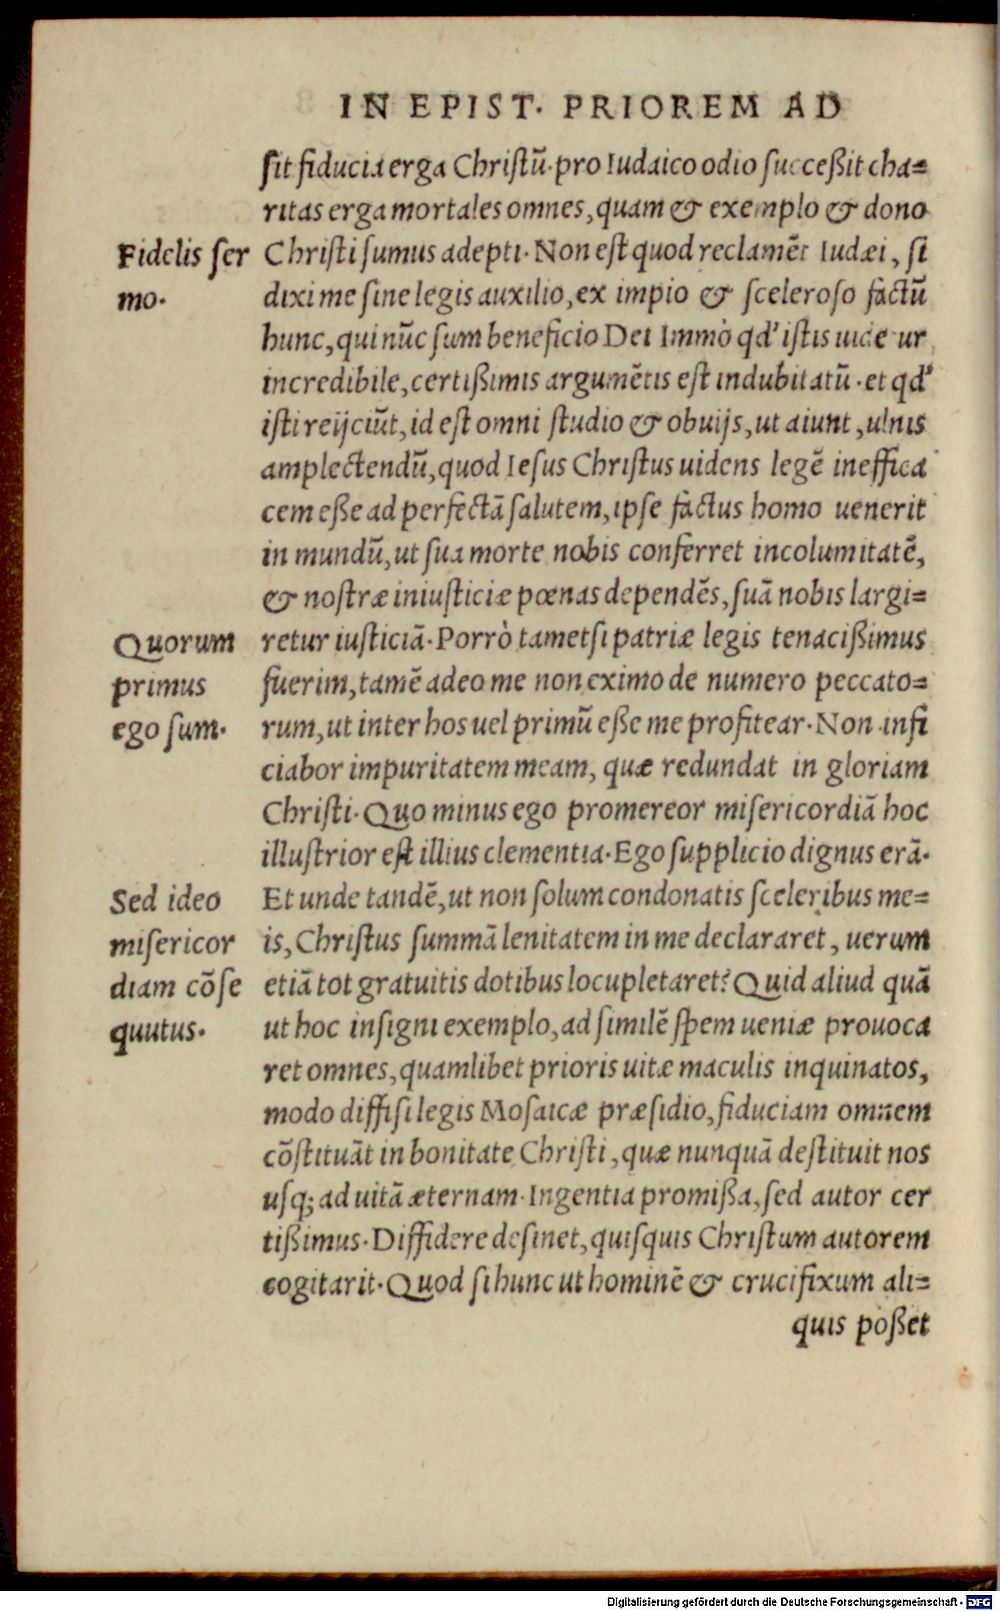 IN EPIST. PRIOREM AD
sit fiducia erga Christū. pro Iudaico odio successit cha=
ritas erga mortales omnes, quam & exemplo & dono
Fidelis ser
mo.
Christi sumus adepti. Non est quod reclamēt Iudæi, si
dixi me sine legis auxilio, ex impio & sceleroso factū
hunc, qui nūc sum beneficio Dei Immò qd' istis uidetur
incredibile, certißimis argumētis est indubitatū. et qd'
isti reijciūt, id est omni studio & obuijs, ut aiunt, ulnis
amplectendū, quod Iesus Christus uidens legē ineffica
cem eße ad perfectā salutem, ipse factus homo uenerit
in mundū, ut sua morte nobis conferret incolumitatē,
& nostræ iniusticiæ pœnas dependēs, suā nobis largi=
Quorum
primus
ego sum.
retur iusticiā. Porrò tametsi patriæ legis tenacißimus
fuerim, tamē adeo me non eximo de numero peccato=
rum, ut inter hos uel primū eße me profitear. Non infi
ciabor impuritatem meam, quæ redundat in gloriam
Christi. Quo minus ego promereor misericordiā hoc
illustrior est illius clementia. Ego supplicio dignus erā.
Sed ideo
misericor
diam cōse
quutus.
Et unde tandē, ut non solum condonatis sceleribus me=
is, Christus summā lenitatem in me declararet, uerum
etiā tot gratuitis dotibus locupletaret? Quid aliud quā
ut hoc insigni exemplo, ad similē spem ueniæ prouoca
ret omnes, quamlibet prioris uitæ maculis inquinatos,
modo diffisi legis Mosaicæ præsidio, fiduciam omnem
cōstituāt in bonitate Christi, quæ nunquā destituit nos
usq; ad uitā æternam. Ingentia promißa, sed autor cer
tißimus. Diffidere desinet, quisquis Christum autorem
cogitarit. Quod si hunc ut hominē & crucifixum ali=
quis poßet
Digitalisierung gefördert durch die Deutsche Forschungsgemeinschaft - DFG